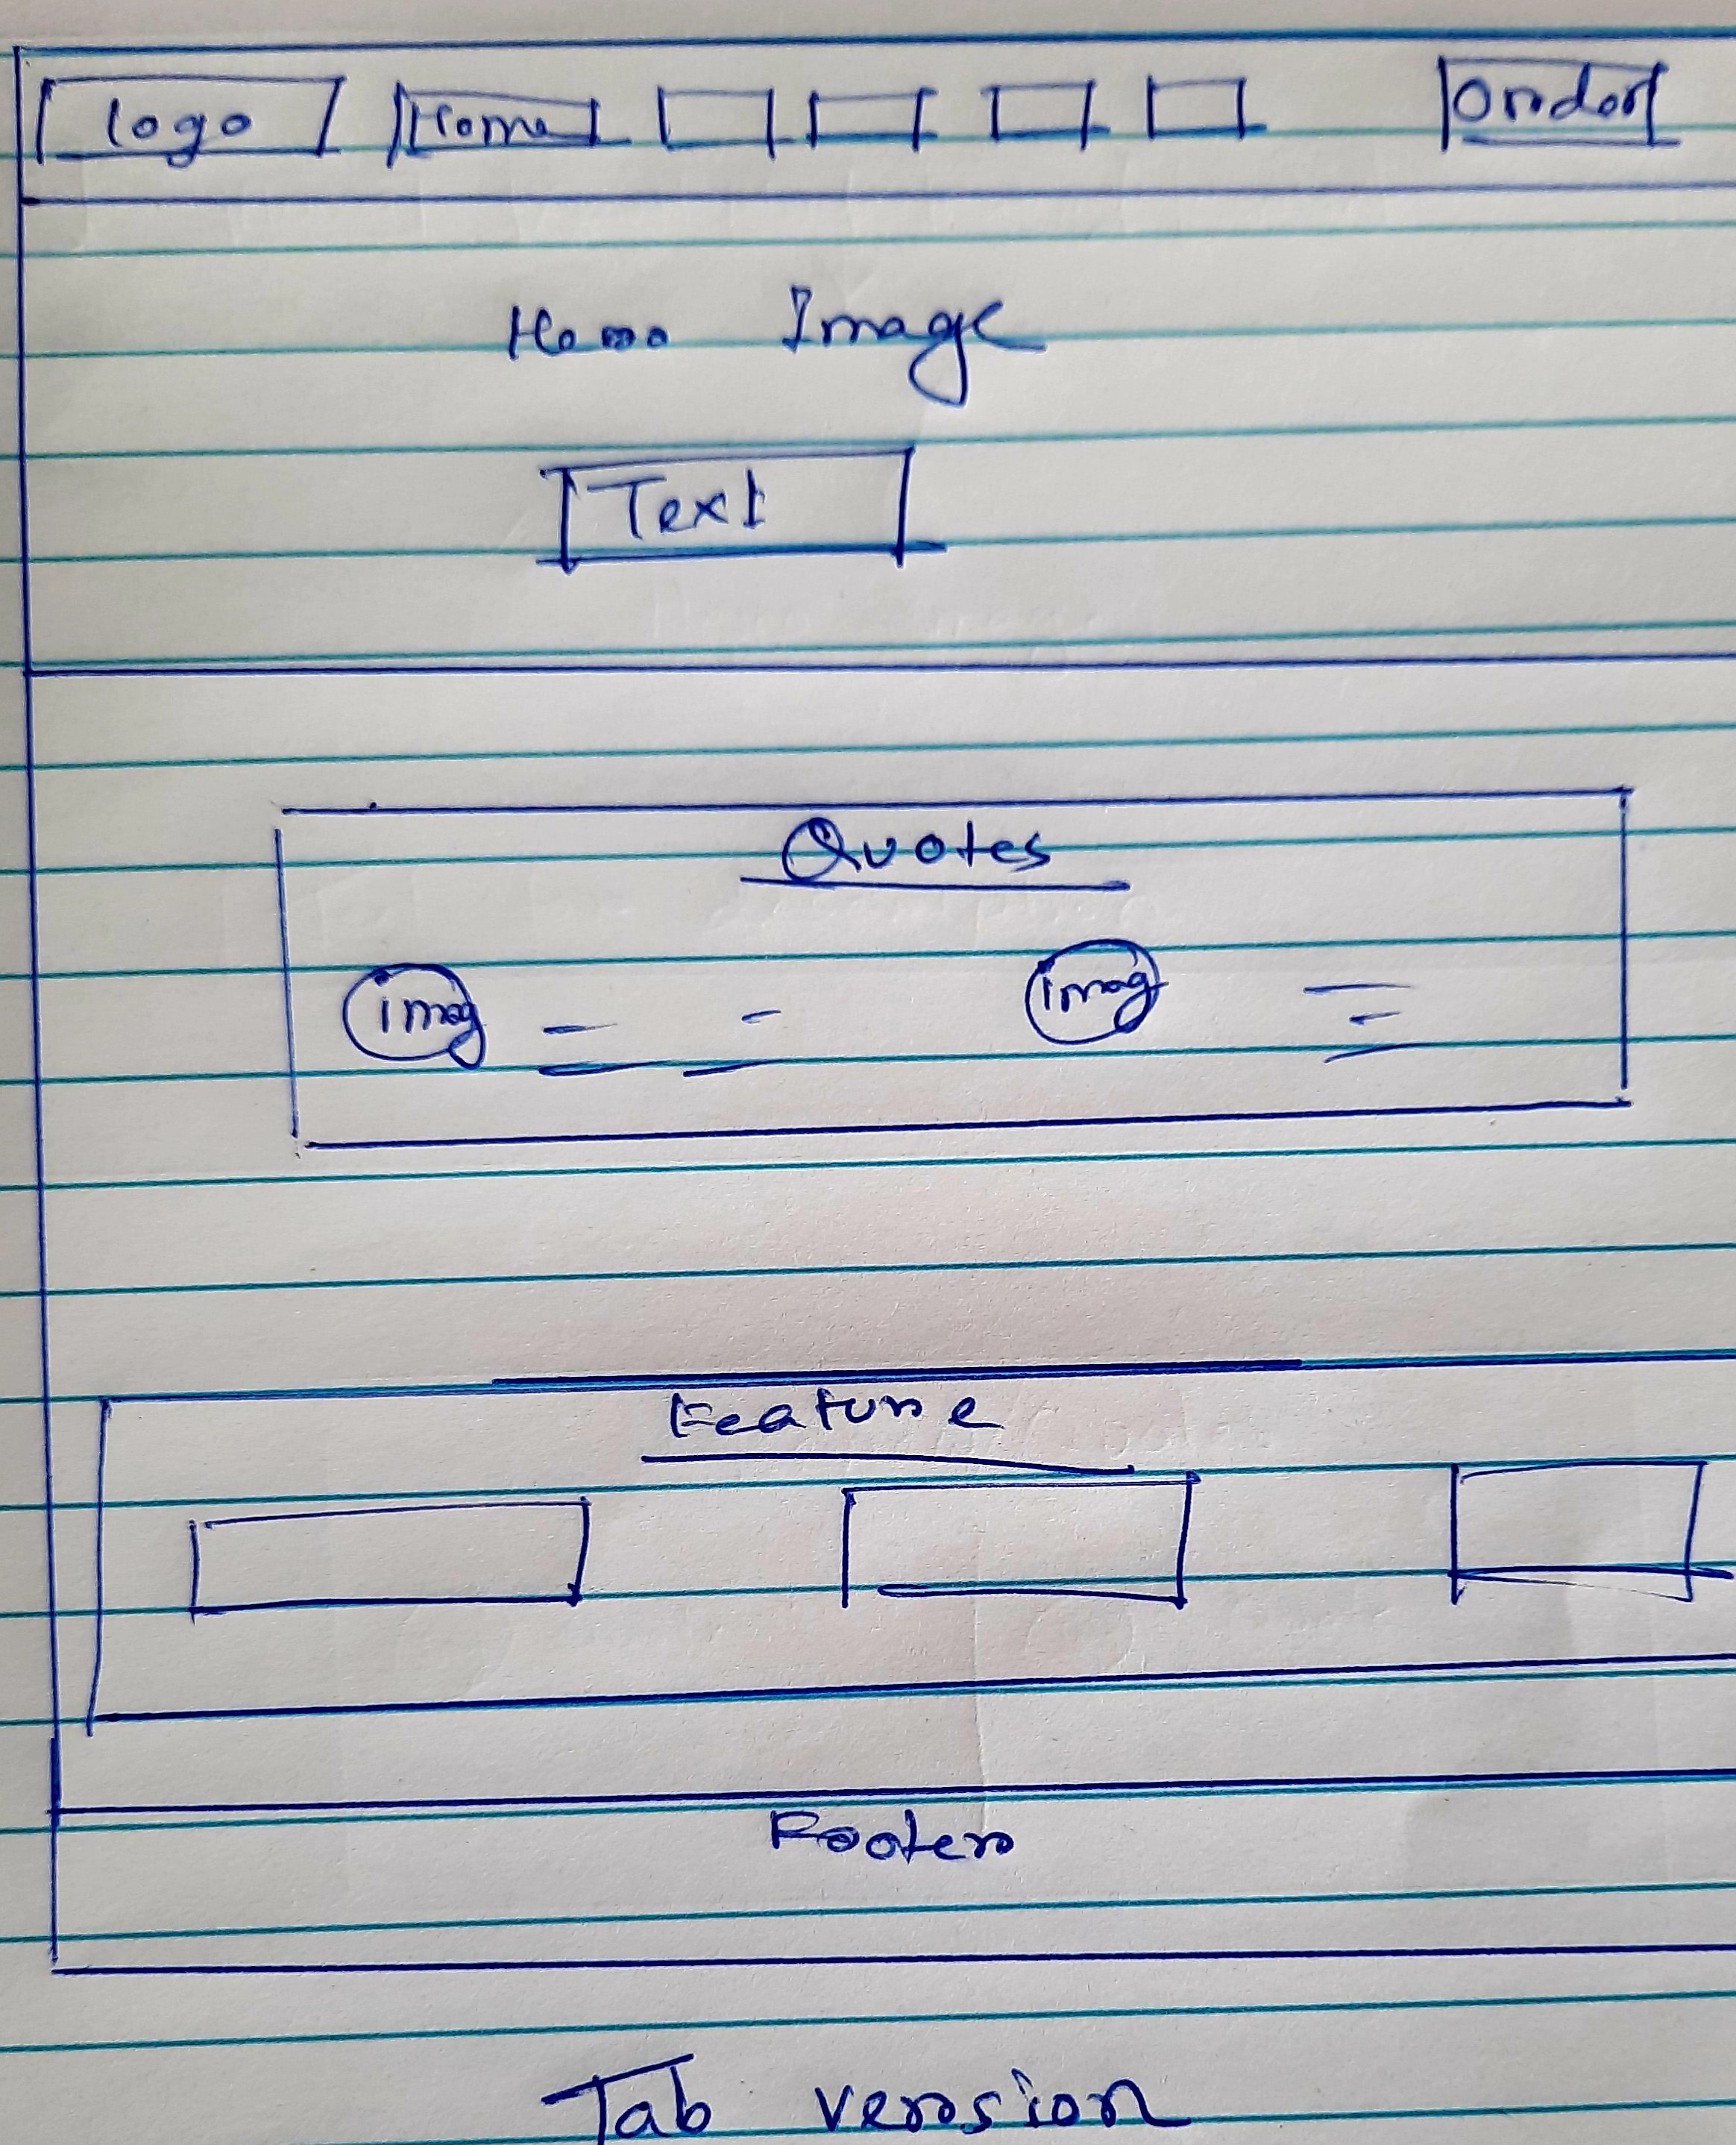 logo Home Order
Hero Image
Text
Quotes
img imag
Feature
Footer
Tab version